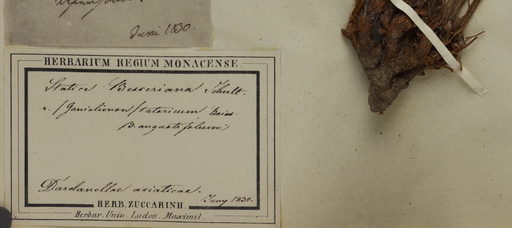 Juni 1830.
HERBARIUM REGIUM MONACENSE.
Statice Besseriana Schult.
(Goniolimon tataricum Boiss.
β. angustifolium
Dardanellae asiaticae.
Juny 1830.
HERB. ZUCCARINII.
Herbar. Univ. Ludov. Maximil.